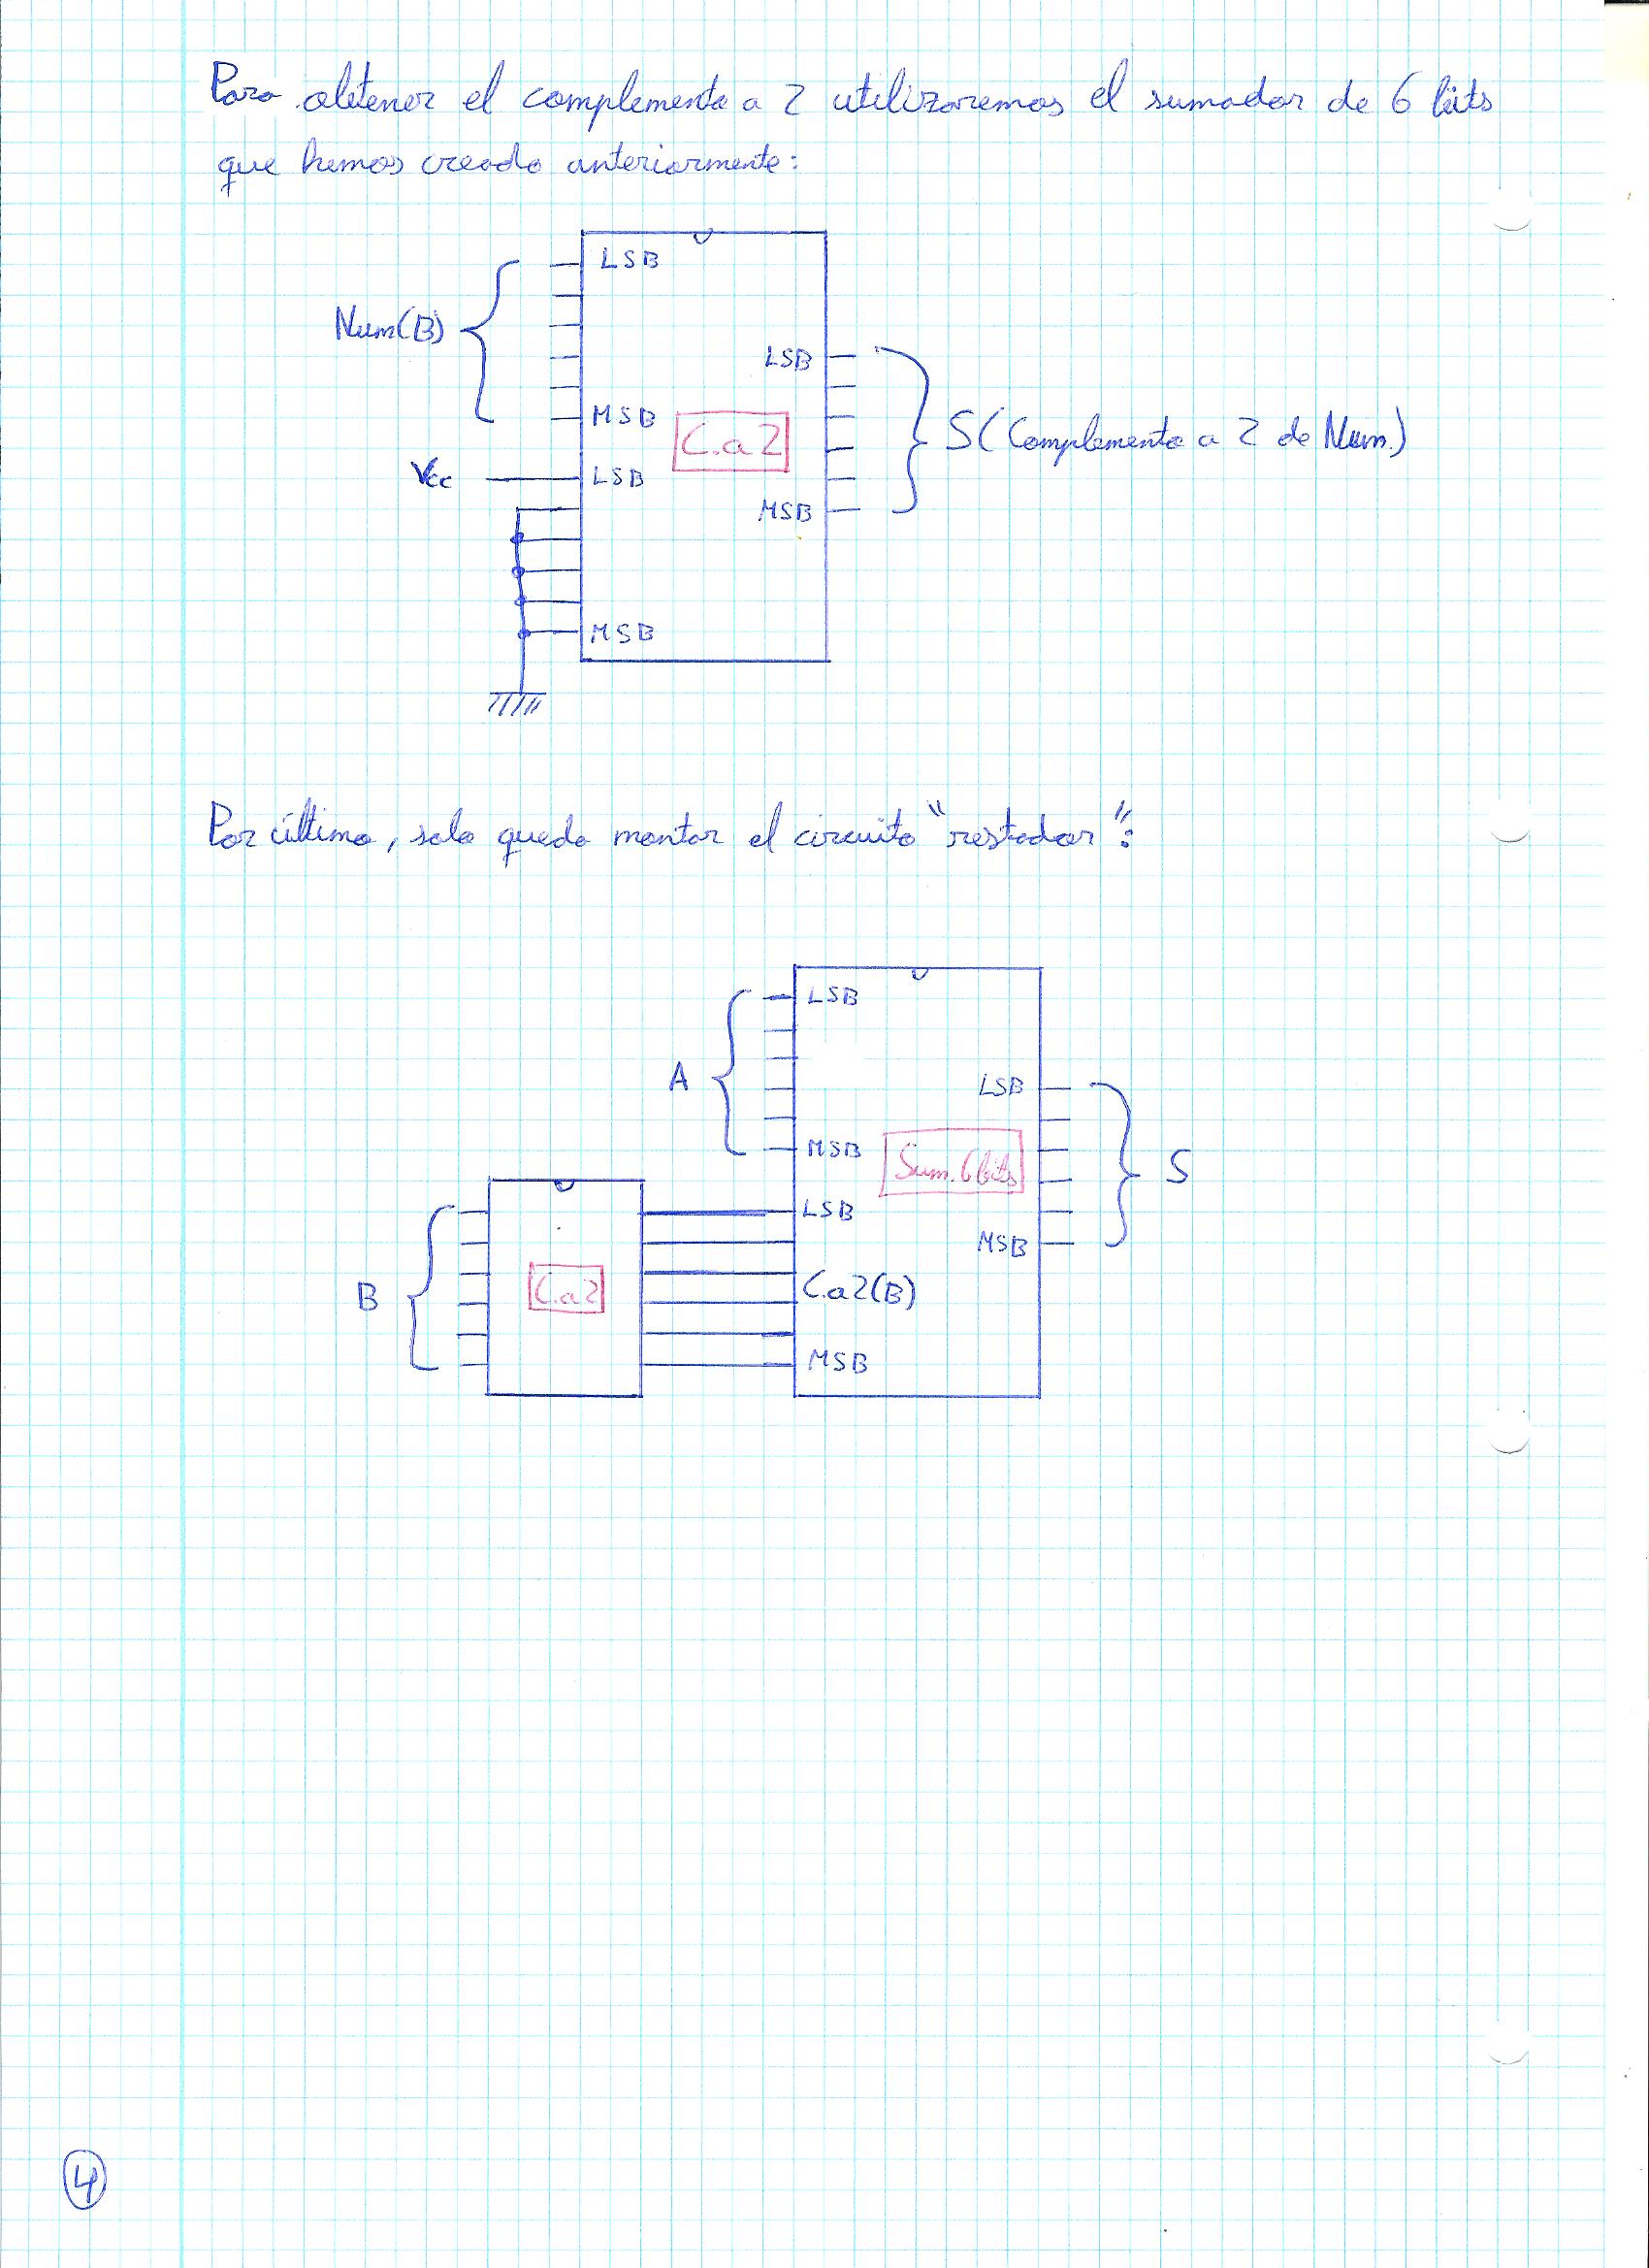 Para obtener el complemento a 2 utilizaremos el sumador de 6 bits
que hemos creado anteriormente:
LSB
Num(B)
LSB
MSB
C.a2
S(Complemento a 2 de Num.)
Vcc
LSB
MSB
MSB
Por último, solo queda montar el circuito "restador":
LSB
A
LSB
MSB
Sum.6bits
S
LSB
MSB
B
C.a2
C.a2(B)
MSB
4